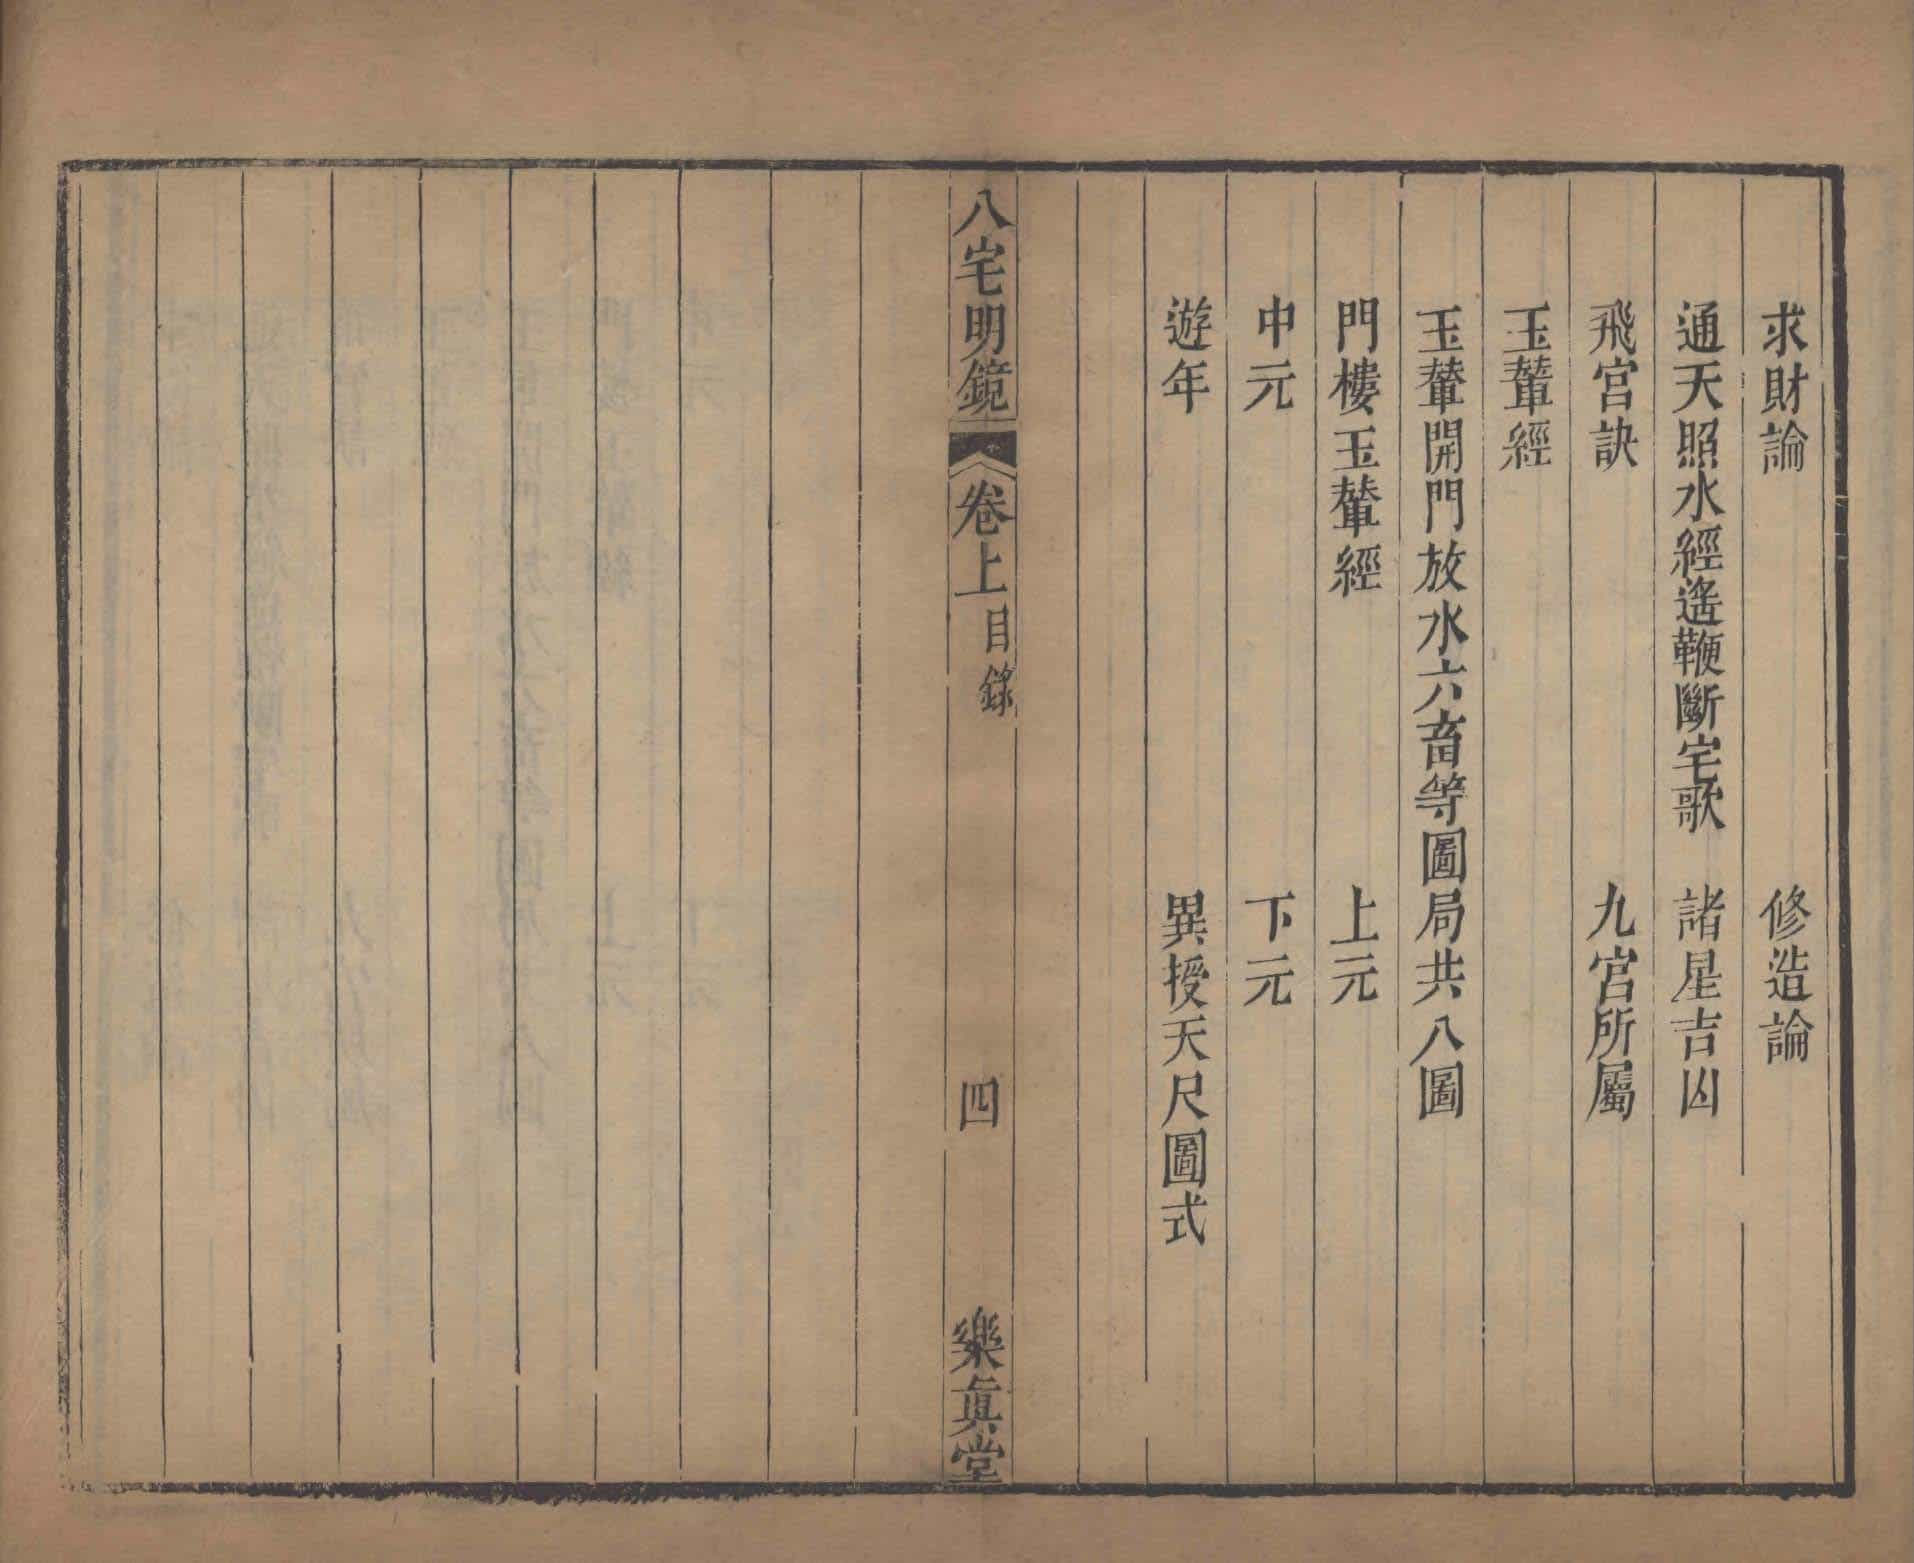 求財論　修造論
通天照水經遙鞭斷宅歌　諸星吉凶
飛宮訣　九宮所屬
玉輦經
玉輦開門放水六畜等圖局共八圖
門樓玉輦經　上元
中元　下元
遊年　異授天尺圖式
八宅明鏡　卷上目錄　四　樂真堂